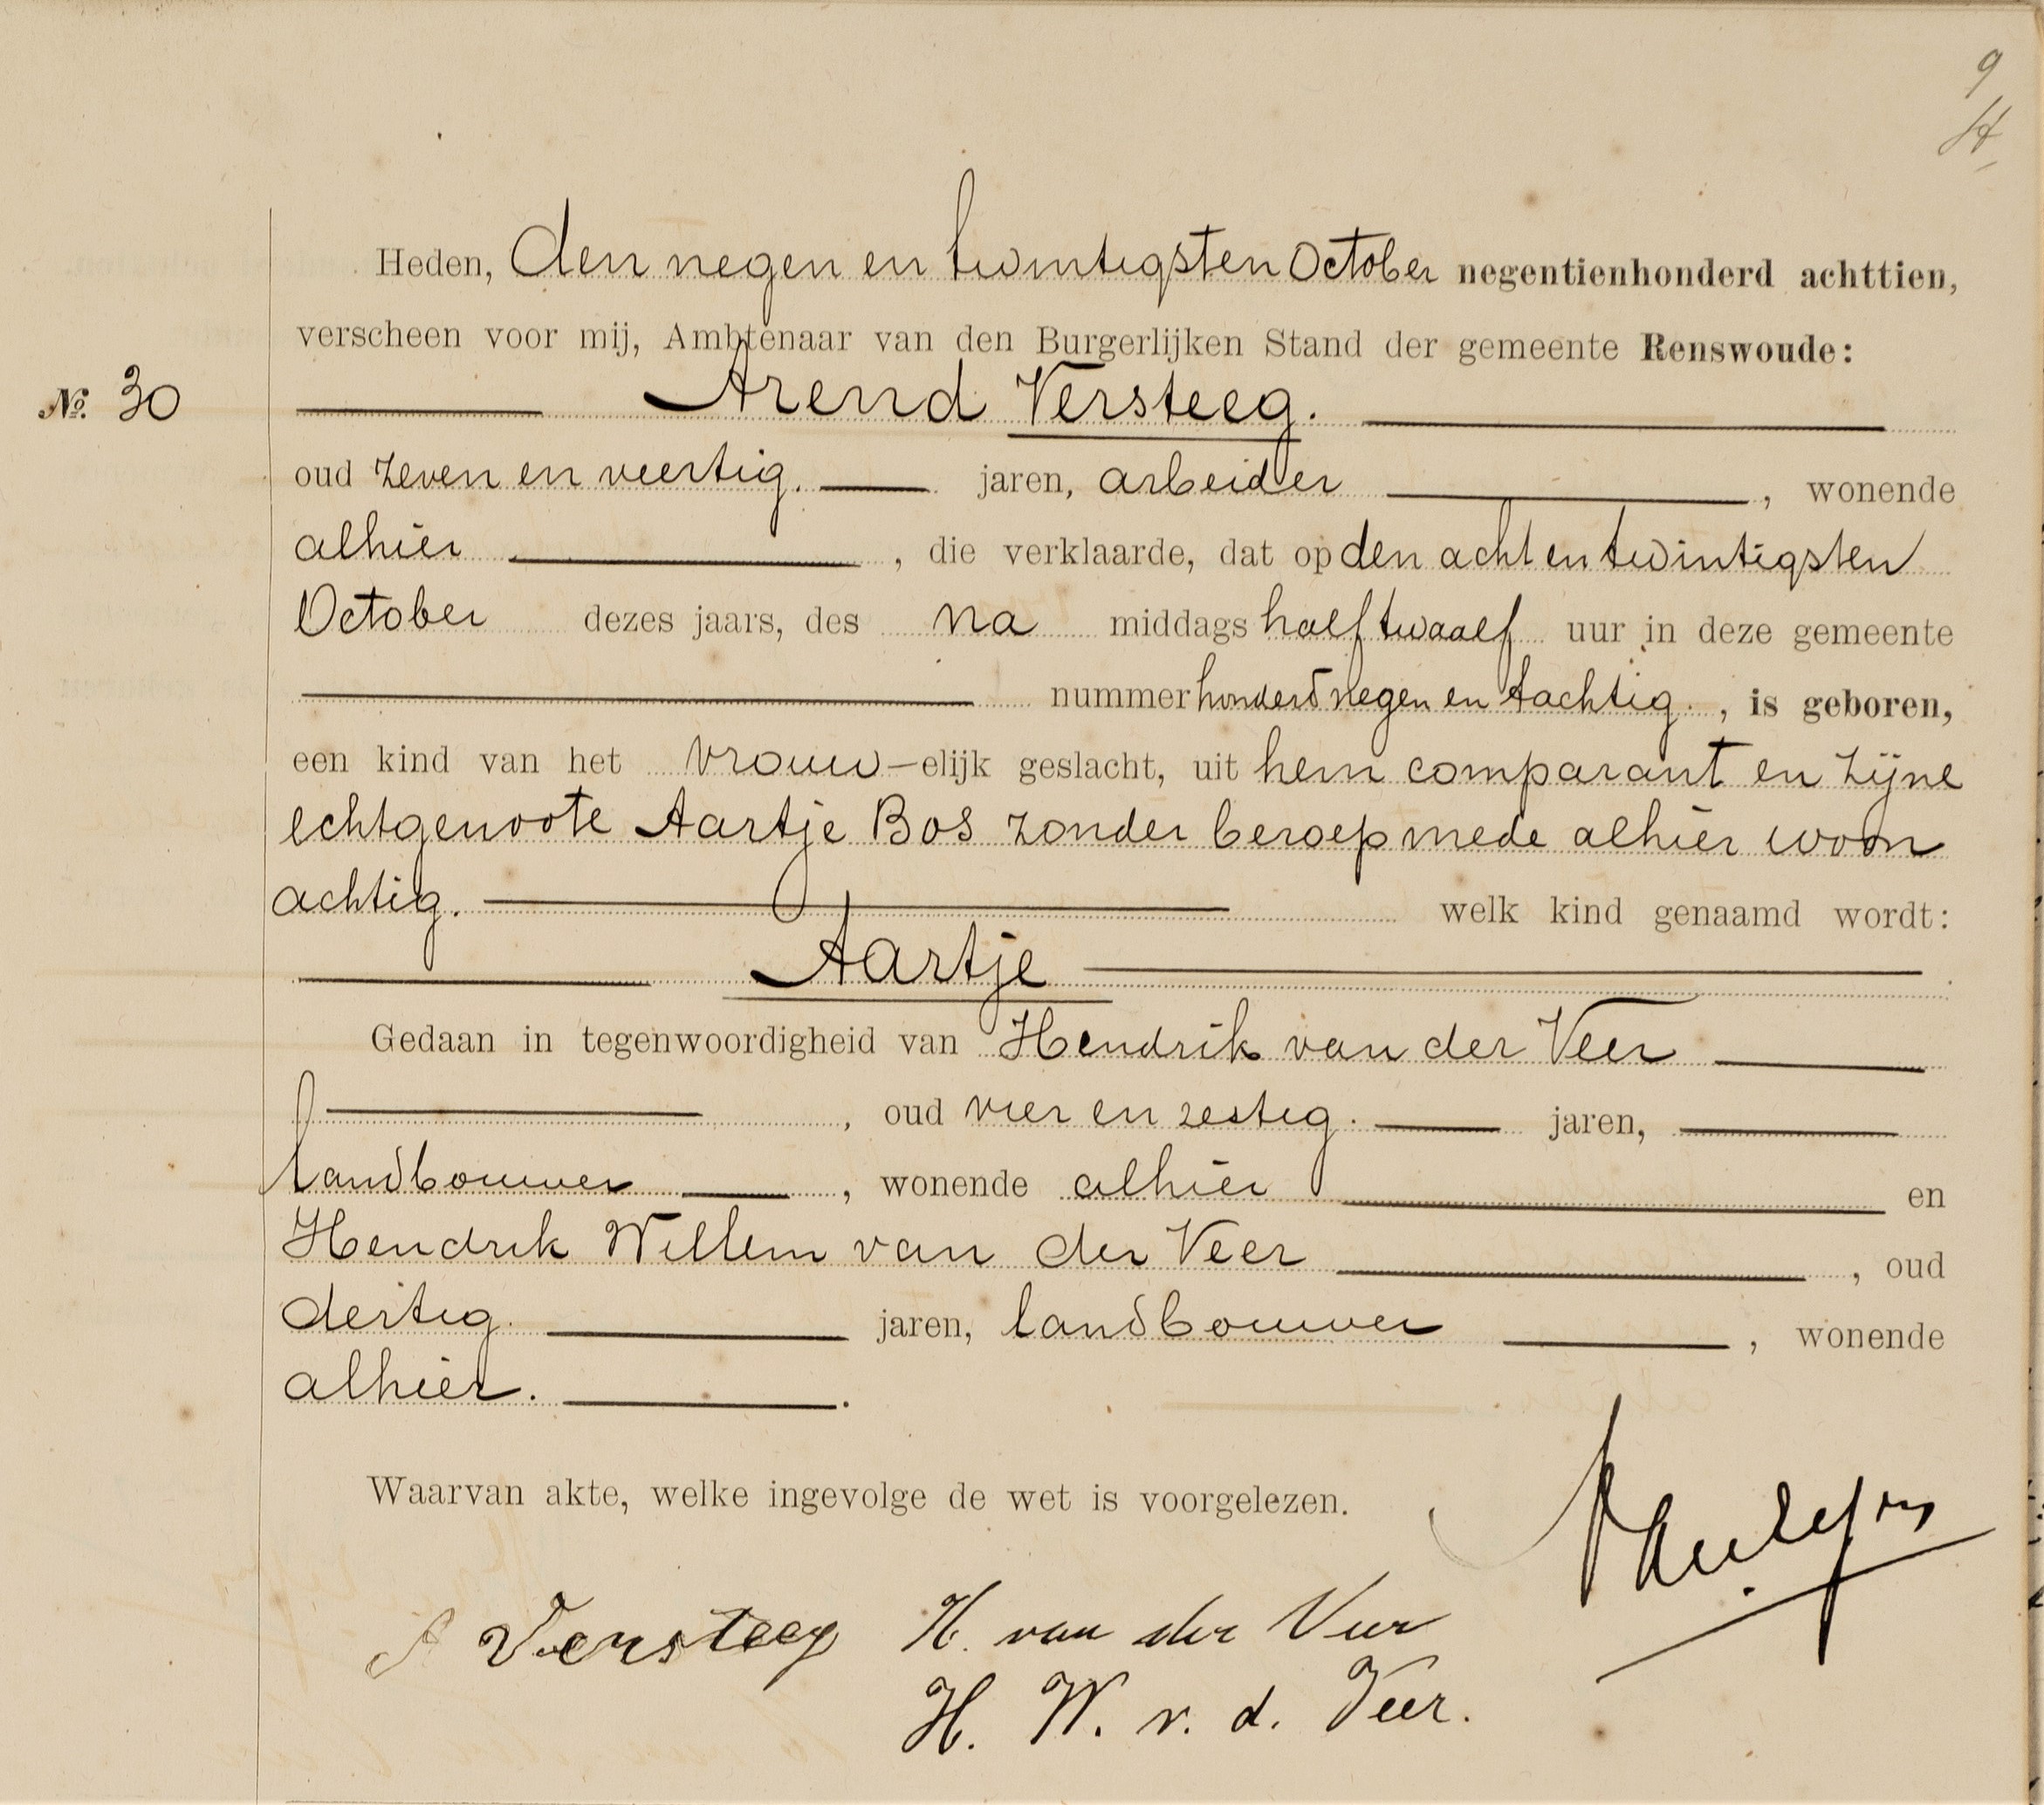 9
Heden, den negen en twintigsten October negentienhonderd achttien,
verscheen voor mij, Ambtenaar van den Burgerlijken Stand der gemeente Renswoude:
No. 30
Arend Versteeg.
oud zeven en veertig. jaren, arbeider , wonende
alhier , die verklaarde, dat op den acht en twintigsten
October dezes jaars, des na middags half twaalf uur in deze gemeente
nummer honderd negen en tachtig. , is geboren,
een kind van het vrouw-elijk geslacht, uit hem comparant en zijne
echtgenoote Aartje Bos zonder beroep mede alhier woon
achtig. welk kind genaamd wordt:
Aartje
Gedaan in tegenwoordigheid van Hendrik van der Veer
, oud vier en zestig. jaren,
landbouwer , wonende alhier en
Hendrik Willem van der Veer , oud
dertig. jaren, landbouwer , wonende
alhier.
Waarvan akte, welke ingevolge de wet is voorgelezen.
A Versteeg H. van der Veer
H. W. v. d. Veer.